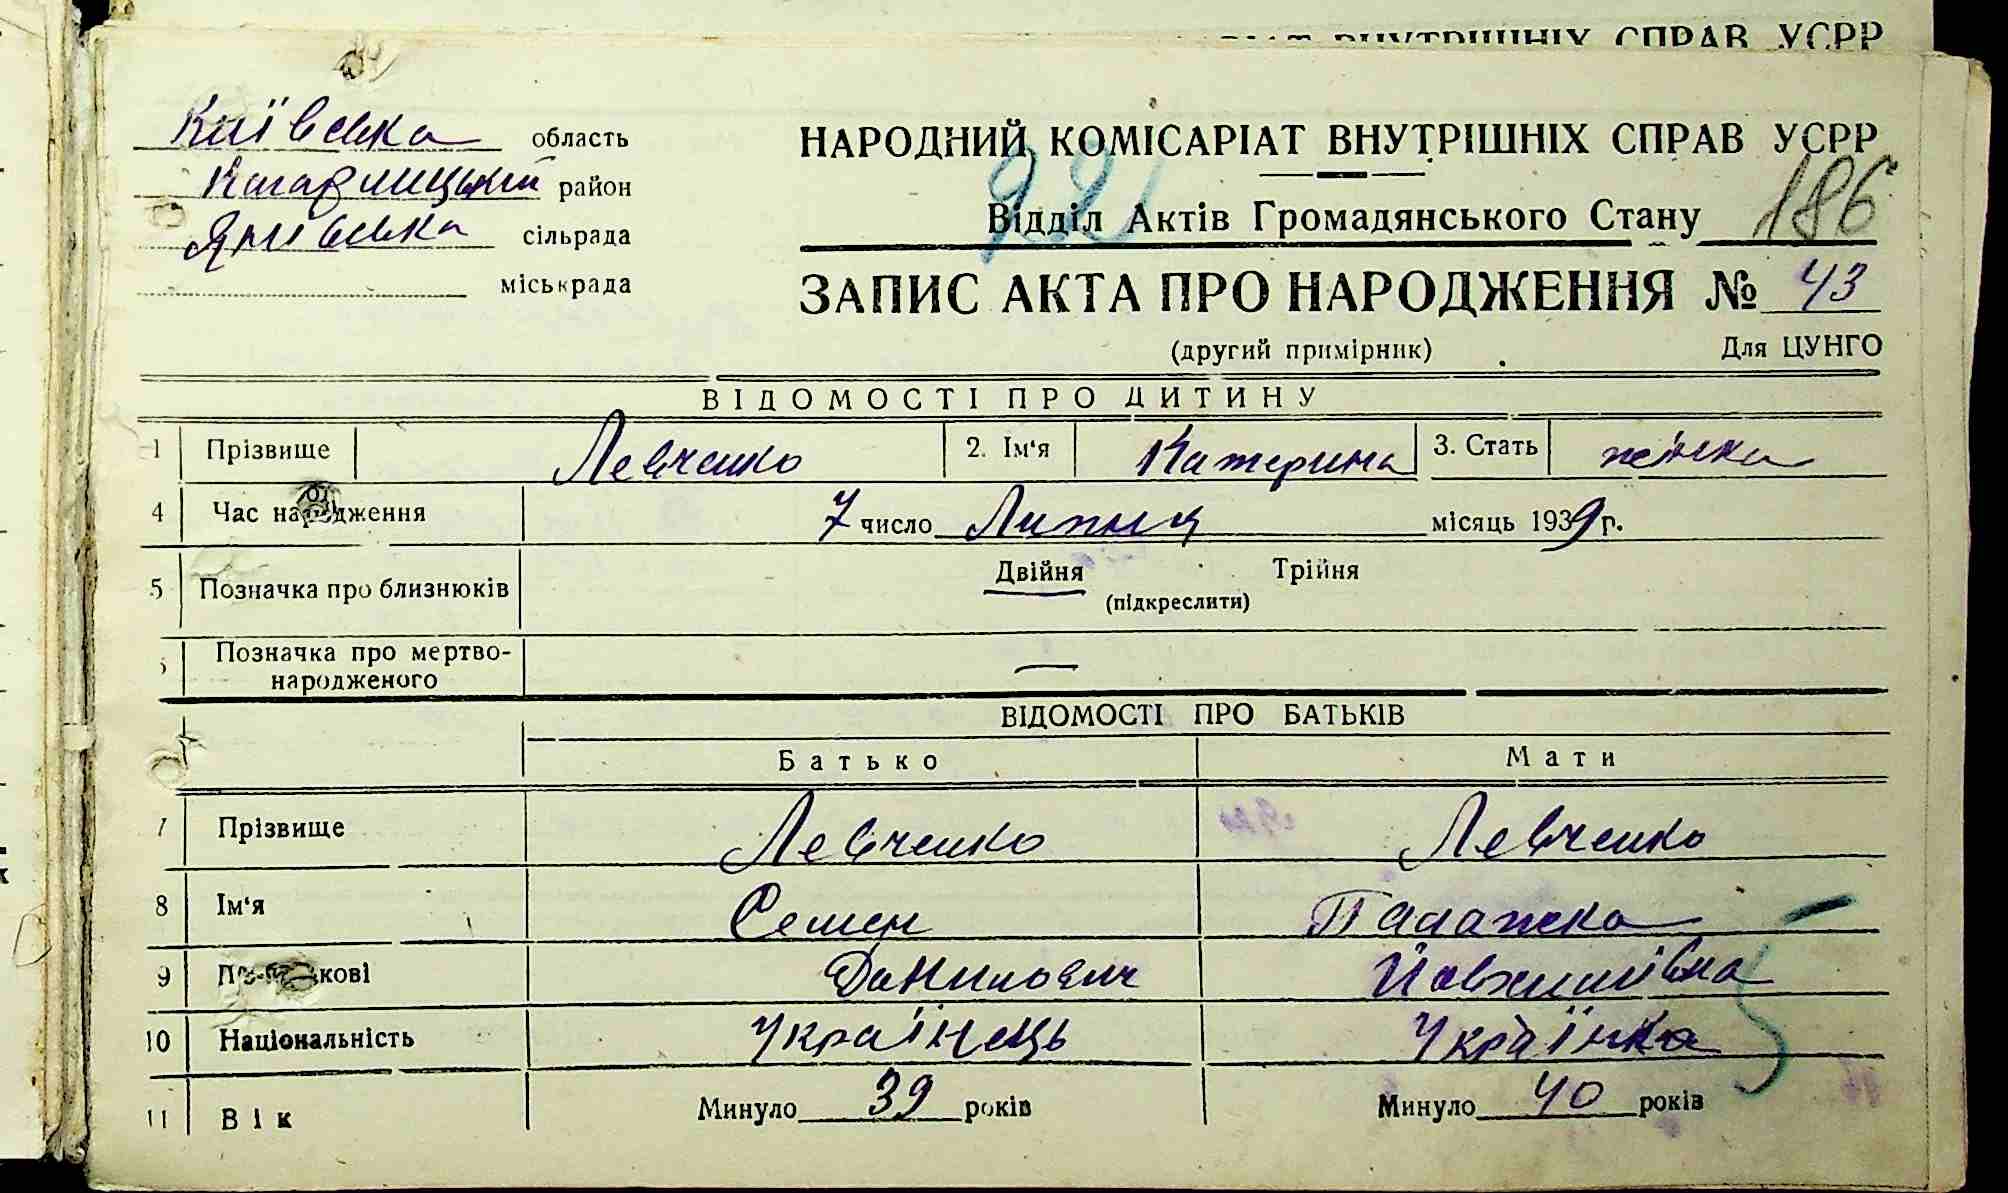 ВНУТРІШНІХ СПРАВ УСРР
Київська область
Кагарлицький район
сільрада
міськрада
НАРОДНИЙ КОМІСАРІАТ ВНУТРІШНІХ СПРАВ УСРР
221 186
Відділ Актів Громадянського Стану
ЗАПИС АКТА ПРО НАРОДЖЕННЯ № 43
(другий примірник) Для ЦУНГО
ВІДОМОСТІ ПРО ДИТИНУ
1 Прізвище Левченко 2. Ім'я Катерина 3. Стать жінка
4 Час народження 7 число Липня місяць 1939 р.
5 Позначка про близнюків Двійня Трійня
(підкреслити)
Позначка про мертво-
народженого —
ВІДОМОСТІ ПРО БАТЬКІВ
Батько Мати
7 Прізвище Левченко Левченко
8 Ім'я Семен Палажка
9 По-батькові Данилович
10 Національність Українець Українка
11 Вік Минуло 39 років Минуло 40 років